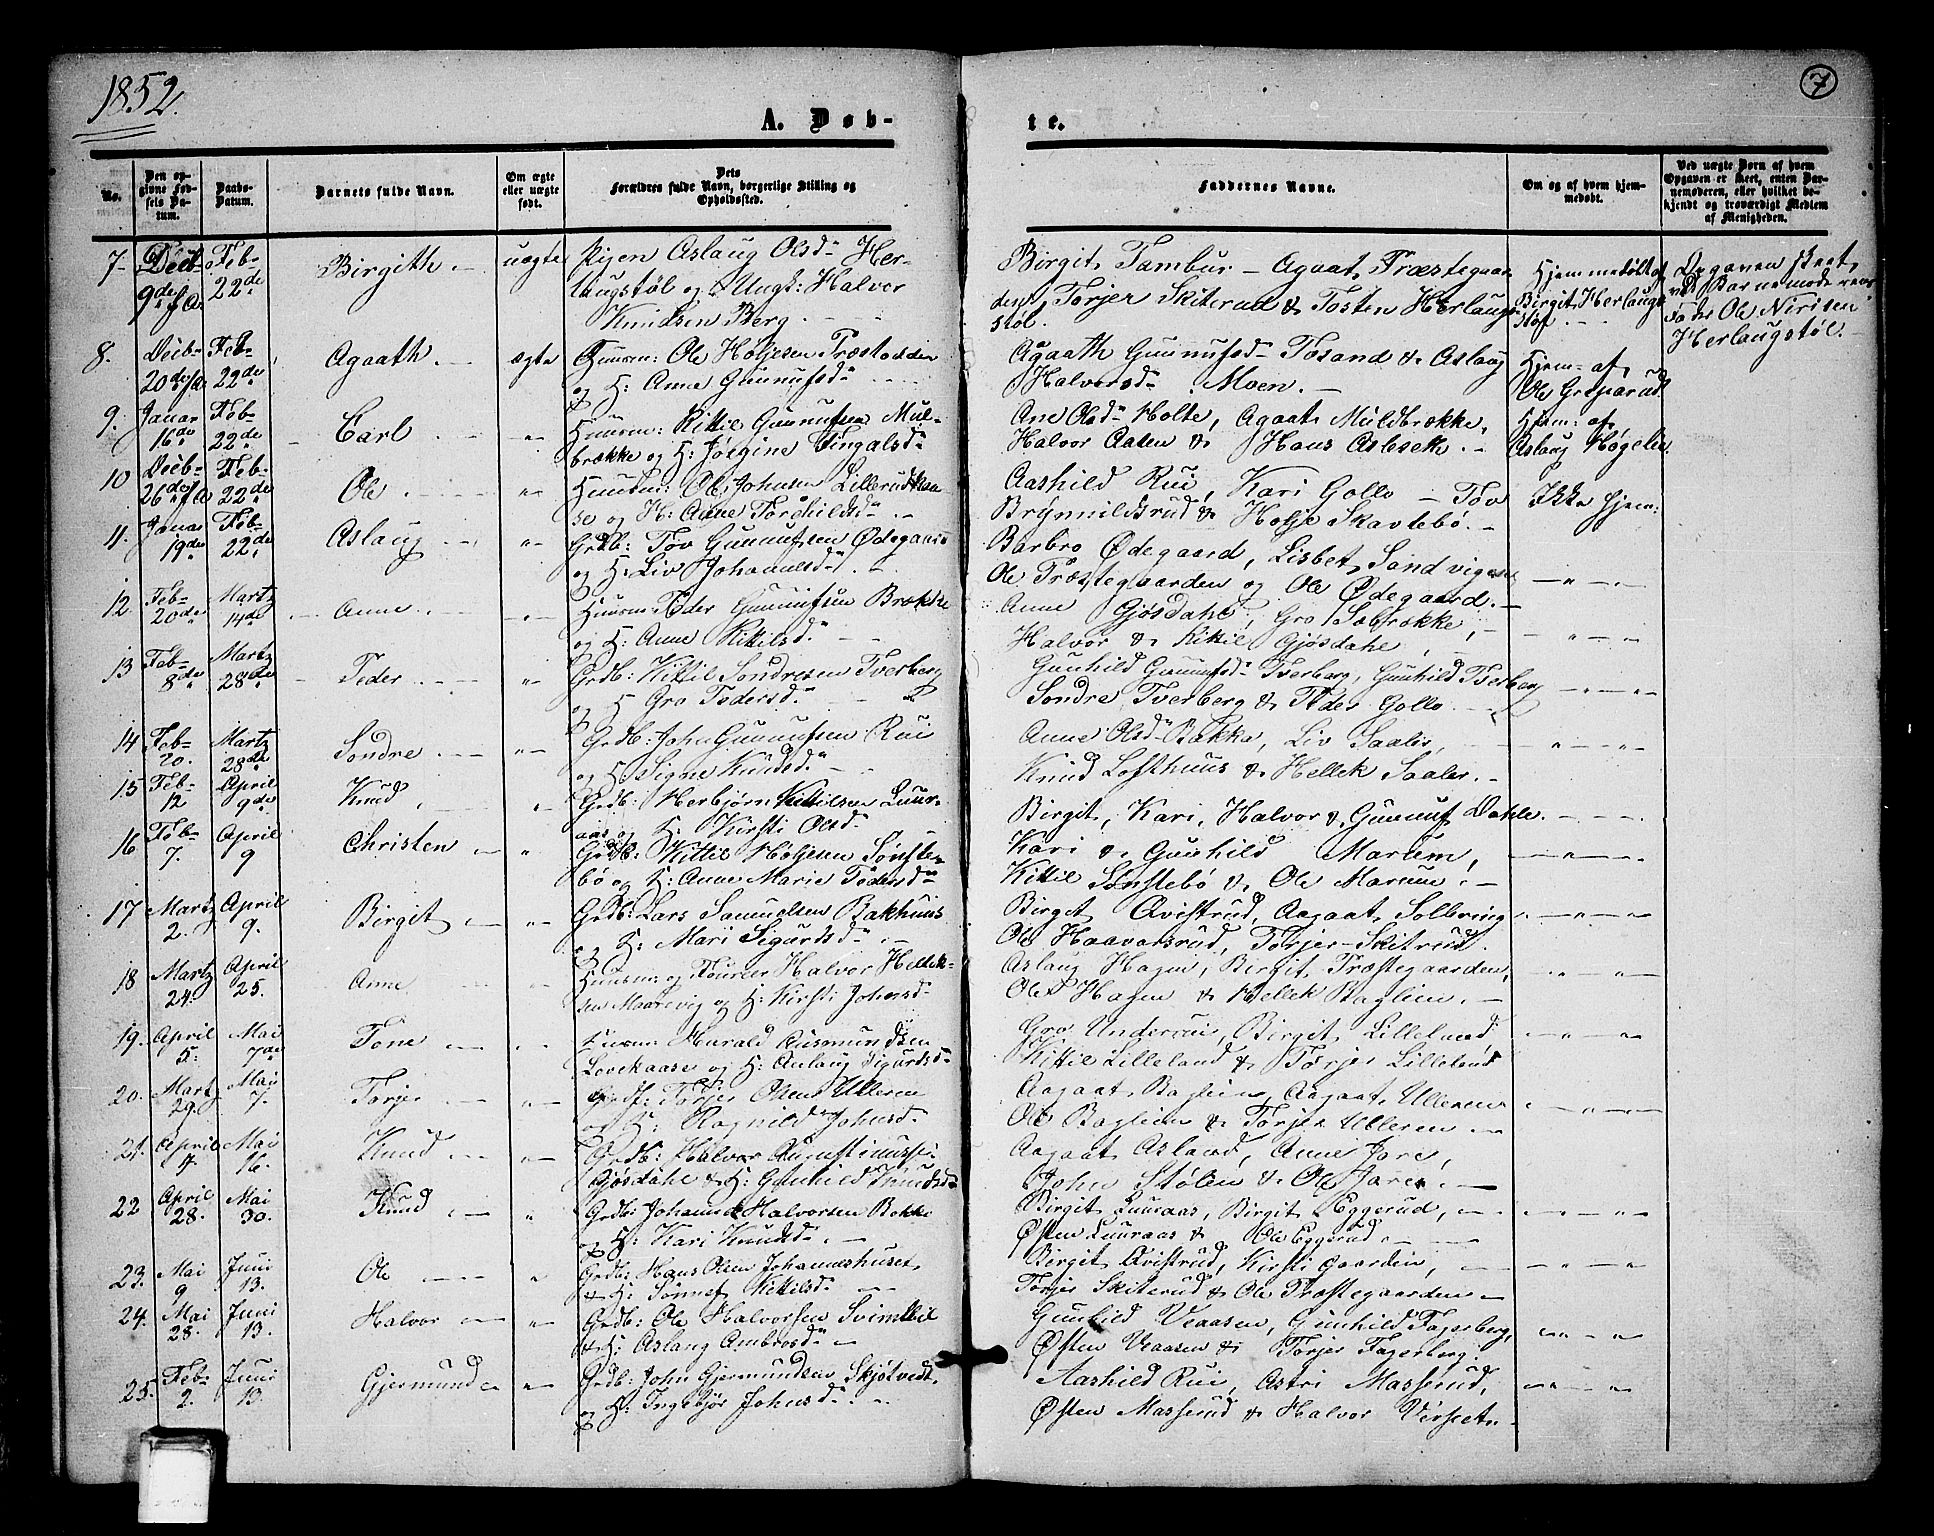 1852.
7
A. Døb-
te.
No.
Den op-
givne Fød-
sels Da-
tum.
Daabs-
Datum.
Barnets fulde Navn.
Om ægte
eller uægte
født.
Dets
Forældres fulde Navn, borgerlige Stilling og
Opholdssted.
Faddernes Navne.
Om og af hvem hjem-
medøbt.
Ved uægte Born af hvem
Opgaven er skeet, enten Bar-
nemoderen, eller hvilket be-
kjendt og troværdigt Medlem
af Menigheden.
7- Decb- 9de f.A. Feb- 22de Birgith uægte Pigen Aslaug Olsd- Her-
laugstøl og Ungk: Halvor
Knudsen Berg.
Birgit Tambur - Agaat Træstegaar
den, Torjer Skiterud & Tosten Herlaug
støl.
Hjemmedøbt af
Birgit Herlaug
støl
Opgaven skeet
ved Barnemoderens
Fader Ole Nirisen
Herlaugstøl.
8. Decb- 20de f.A. Feb- 22de Agaath ægte Huusm: Ole Holjesen Træstadden
og H: Anne Gunnufsd-
Agaath Gunnufsd- Tosand & Aslaug
Halvorsd- Moen.
Hjem- af
Ole Greparud
9. Januar 16de Feb- 22de Carl - " - Huusm: Kittil Gunnufsen Mul-
brække og H: Jørgine Eingalsd-
Ane Olsd- Holte, Agaat Muldbrække,
Halvor Aasen & Hans Asbsek.
Hjem: af
Aslaug Høgelie
10 Decb- 26de f.A. Feb- 22de Ole - " - Huusm: Ole Johnsen Lillerudkaa
se og H: Anne Torchildsd-
Aashild Rui, Kari Gollo - Tov
Brynnildsrud & Holje Skavlebø.
Ikke hjem:
11. Januar 19de Feb- 22de Aslaug " - Grdb: Tov Gunnufsen Ødegaard
og H: Liv Johannesd-
Barbro Ødegaard, Lisbet Sandvigen
Ole Træstegaarden og Ole Ødegaard.
- " - " -
12. Feb- 20de Martz 14de Anne - " - Huusm Teder Gunnufsen Brække
og H: Anne Kittilsd-
Anne Gjøsdahl, Gro Sobrække,
Halvor & Kittil Gjøsdahl,
" - " -
13 Feb- 8de Martz 28de Teder " Grdb: Kittil Sondresen Tverberg
og H Gro Tedersd-
Gunhild Gunnufsd- Tverberg, Gunhild Tverberg
Sondre Tverberg & Teder Gollo.
- " - " -
14 Feb- 20. Martz 28de Sondre " - Grdb: John Gunnufsen Rui
og H: Signe Knudsd-
Anne Olsd- Bakka, Liv Saales,
Knud Lofthuus & Hellek Saales.
" - " -
15 Feb- 12 April 9de Knud " - Grdb: Herbjørn Kittilsen Luur-
aas og H: Kirsti Olsd-
Birgit, Kari, Halvor & Gunnuf Dahle.
16 Feb- 7. April 9 Christen " Grdb: Kittil Holjesen Sønste-
bø og H: Anne Marie Tedersd-
Kari & Gunhild Marum,
Kittil Sønstebø & Ole Marum.
- " -
17 Martz 2. April 9. Birgit " - Grdb: Lars Samuelsen Bakhuus
og H: Mari Sigurdsd-
Birget Qvistrud, Aagaat Solbering
Ole Haavarsrud, Torjer Skitrud.
- " - " -
18 Martz 24. April 25. Anne " Huusm: og Tourer Halvor Hellek-
sen Maarevig og H: Kirsti Johnsd-
Aslaug Hagen, Birgit Træstegaarden,
Ole Hagen & Hellek Baglien.
" - " -
19. April 5. Mai 7de Tone " Huusm Harald Aasmundsen
Lovekaase og H: Anlaug Sigurdsd-
Gro Underrui, Birgit Lilleland
Kittil Lilleland & Torjer Lilleland
- " - "
20. Martz 29. Mai 7. Torjer " - Grdf: Torjer Olsen Ulleren
og H. Ragnild Johnsd-
Aagaat Baglien, Aagaat Ulleren
Ole Baglien & Torjer Ulleren
- " - " -
21. April 7. Mai 16. Knud " - Grdb: Halvor Augustinusse
Gjøsdahl & H: Gunhild Knudsd-
Aagaat Asland, Anne Jore,
John Stølen & Ole Jore.
22 April 28. Mai 30. Knud " Grdb: Johannes Halvorsen Bakke
og H: Kari Knudsd-
Birgit Luuraas, Birgit Eggerud,
Østen Luuraas & Ole Eggerud.
- " - "
23. Mai 9 Juni 13. Ole " Grdb: Hans Olsen Johanneshuset
& H: Sønnef Kittilsd-
Birgit Qvistrud, Kirsti Gaarden,
Torjer Skiterud & Ole Træstegaarden
- " - "
24. Mai 28. Juni 13. Halvor " - Grdb: Ole Halvorsen Svimbil
& H: Aslaug Ambrosd-
Gunhild Veaasen, Gunhild Fagerberg,
Østen Veaasen & Torjer Fagerberg.
" - " -
25. Feb- 2. Juni 13. Gjermund " - Grdb: John Gjermundsen Skjøtvedt,
og H: Ingebjør Johnsd-
Aashild Rui, Astri Masserud,
Østen Masserud & Halvor Versetn
- " - " -